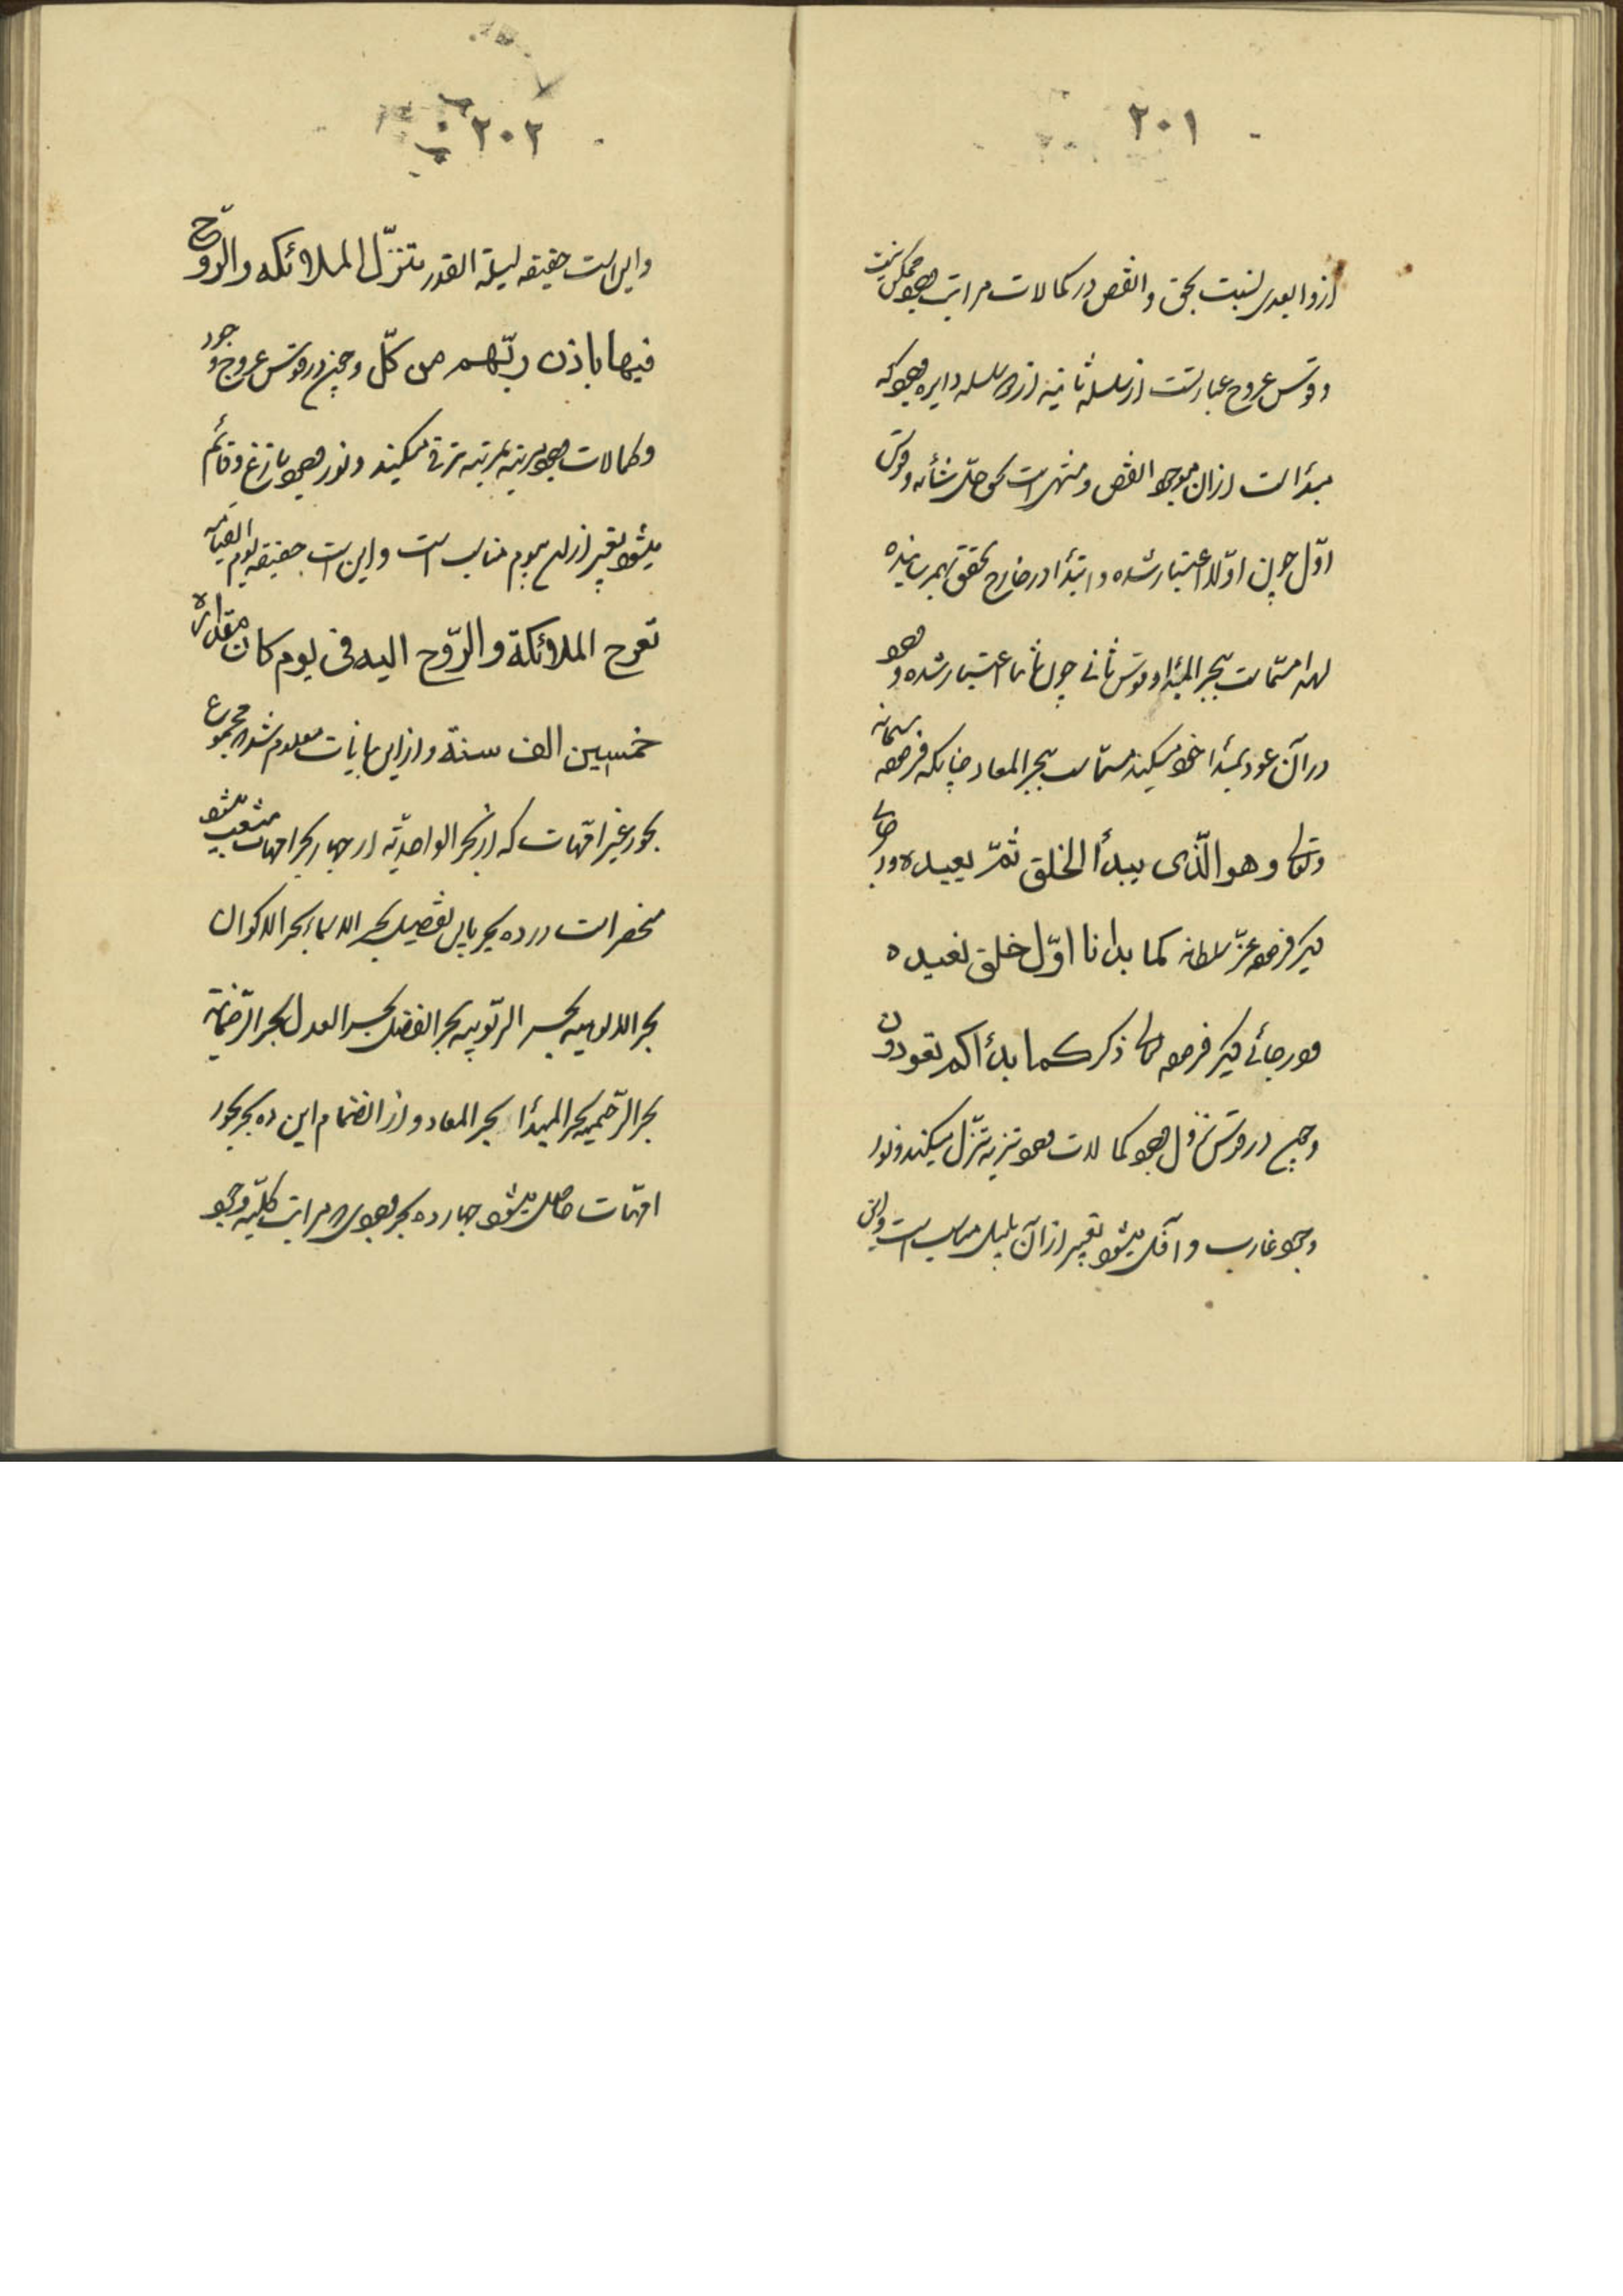 ٢٠١
ازو ابعدی نسبت بحق و انقص در کمالات مراتب وجود ممکن نیست
و قوس عروج عبارتست از سلسله ثانیه ازین سلسله دایره وجود که
مبدأ است ازان موجود انقص و منتهی است بحق جلّ شأنه و قوس
اوّل چون اوّلا اعتبار شده و ابتدأ در خارج تحقق بهمرسانیده
لهذا مسمّاست ببحر المبدأ و قوس ثانی چون ثانیا اعتبار شده و وجود
در آن عود بمبدأ خود میکند مسمّاست ببحر المعاد چنانکه فرموده سبحانه
وتعالی و هو الّذی یبدأ الخلق ثمّ یعیده و در جای
دیگر فرموده عزّ سلطانه کما بدانا اوّل خلق نعیده
و در جائی دیگر فرموده تعالی ذکره کما بدأکم تعودون
و چون در قوس نزول وجود کمالات وجود تنزیه تنزّل میکند و نور
وجود غارب و آفل میشود تعبیر ازآن بلیل مناسب است
٢٠٢
و این است حقیقه لیلة القدر تتنزّل الملائکه والرّوح
فیها باذن ربّهم من کلّ و چون در قوس عروج وجود
و کمالات وجود مرتبه بمرتبه ترقی میکند و نور وجود بازغ و قائم
میشود تعبیر ازان بیوم مناسب است و این است حقیقه یوم القیامه
تعرج الملائکة و الرّوح الیه فی یوم کان مقداره
خمسین الف سنة و ازاین بیانات معلوم شد که مجموع
بحور غیر امّهات که از بحر الواحدیّه از چهار بحر امهات منشعب میشود
منحصر است در ده بحر باین تفصیل بحر الاسماء بحر الاکوان
بحر الالوهیه بحر الربّوبیه بحر الفضل بحر العدل بحر الرّحمانیّه
بحر الرّحیمیه بحر المبدأ بحر المعاد و از انضمام این ده بحر ببحور
امّهات حاصل میشود چهارده بحر مراتب کلیّه وجود